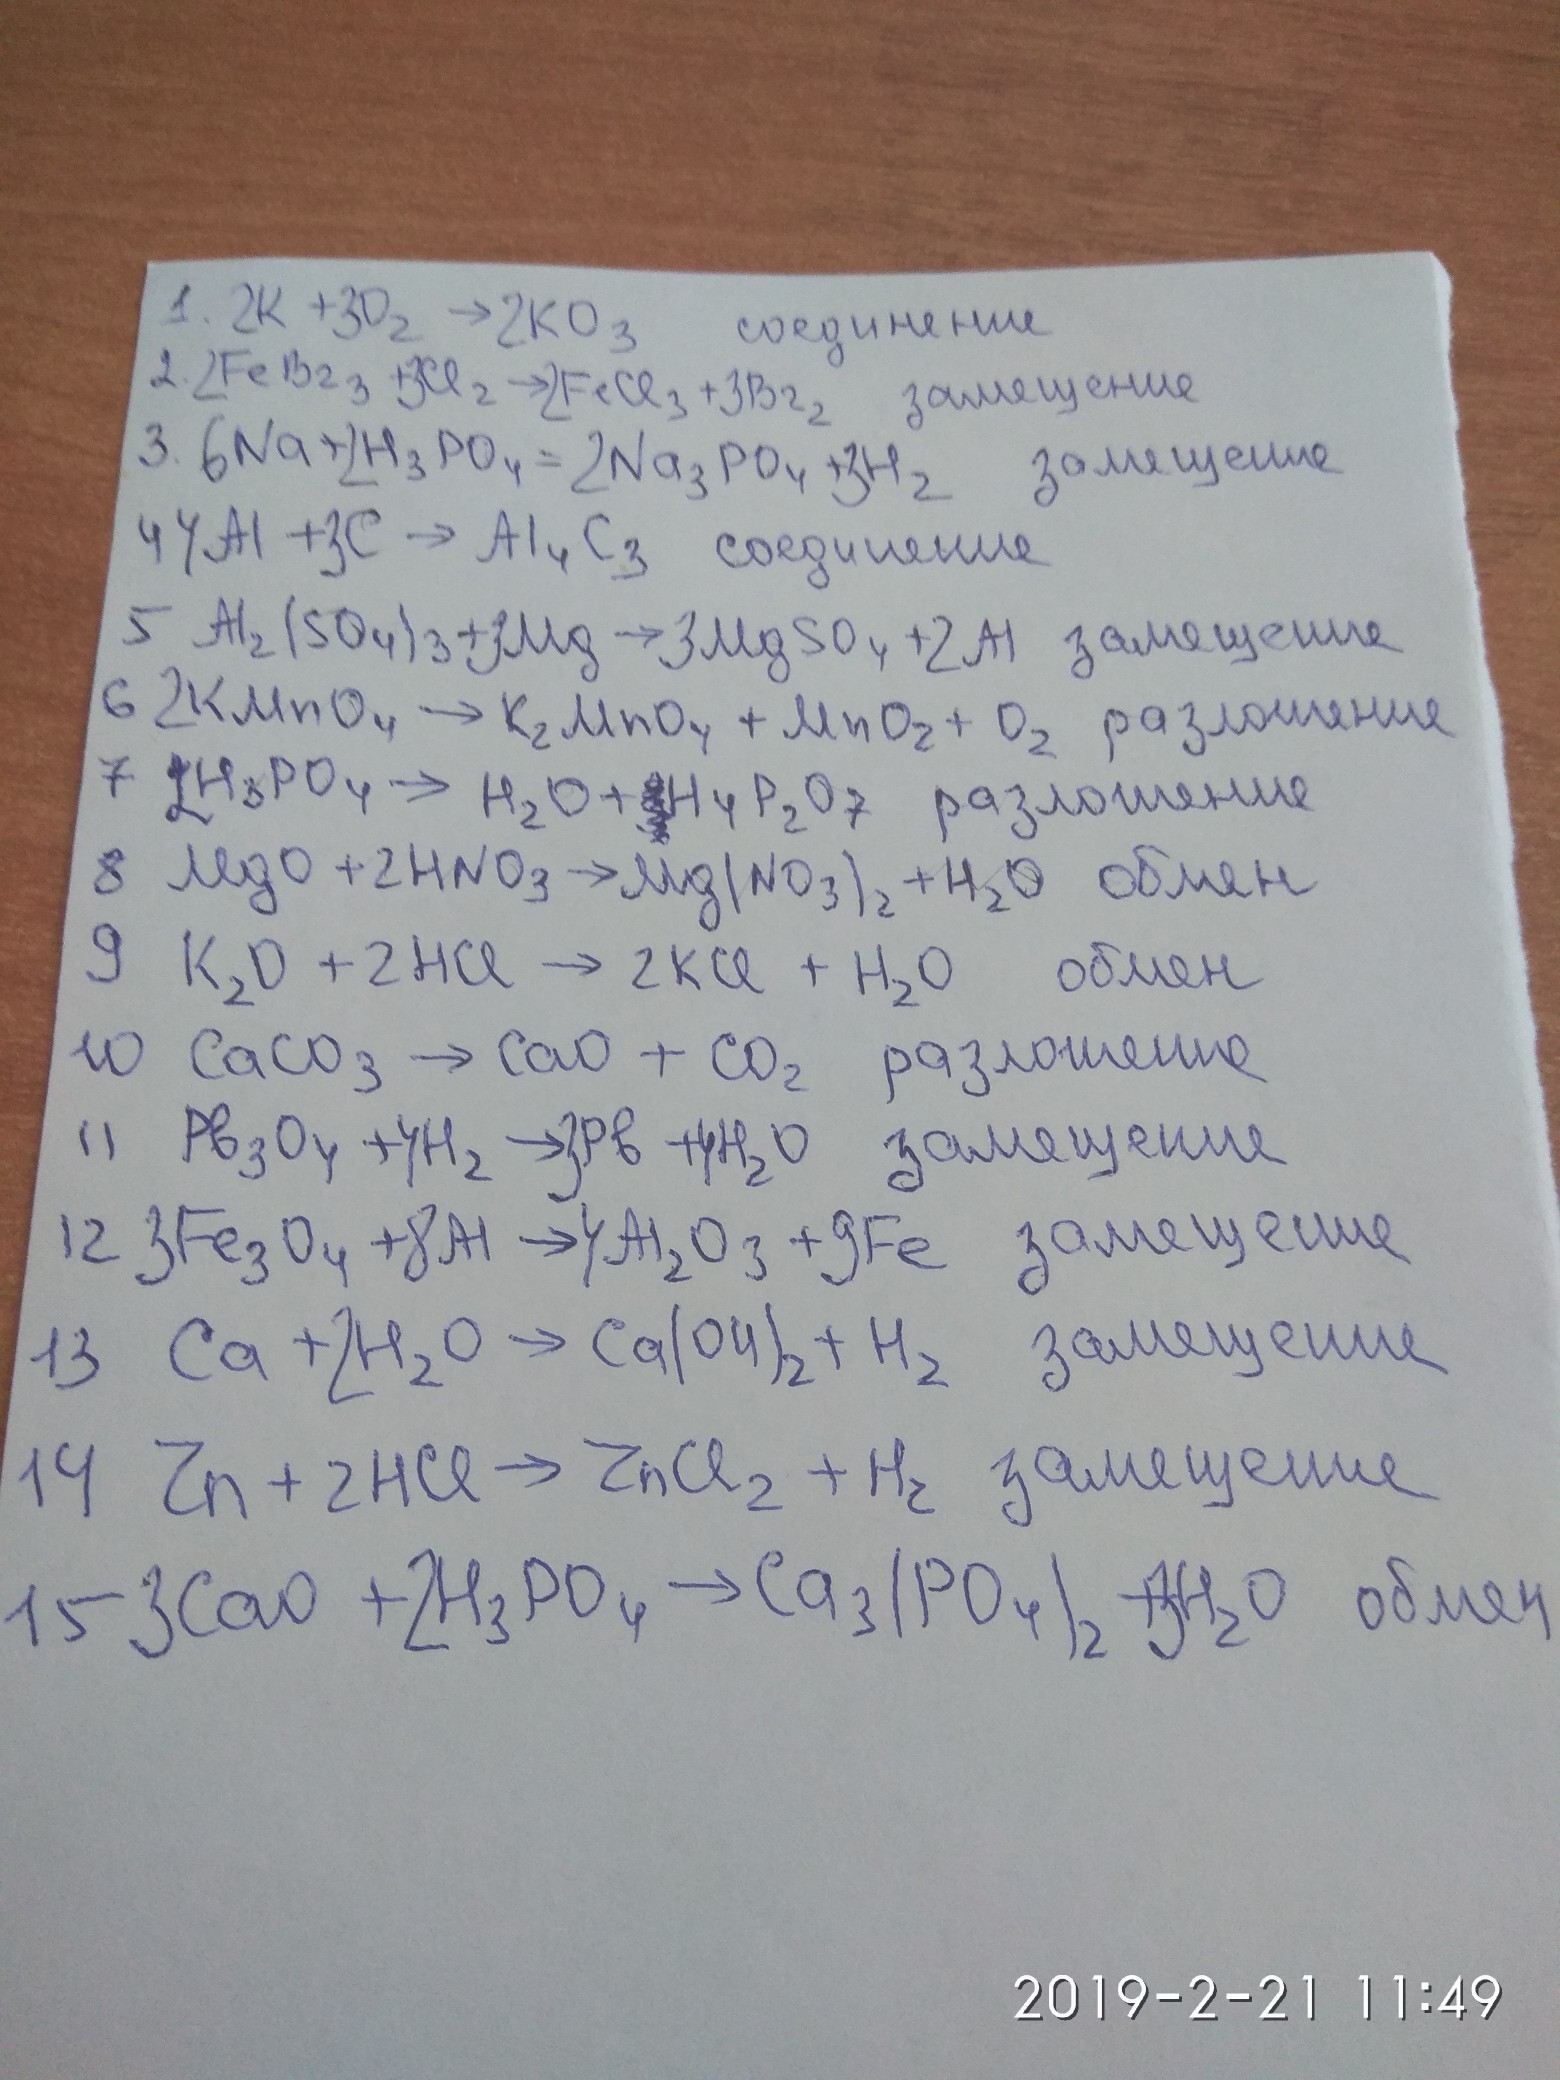 1. 2K + 3O₂ → 2KO₃ соединение
2. 2FeBr₃ + 3Cl₂ → 2FeCl₃ + 3Br₂ замещение
3. 6Na + 2H₃PO₄ = 2Na₃PO₄ + 3H₂ замещение
4 4Al + 3C → Al₄C₃ соединение
5 Al₂(SO₄)₃ + 3Mg → 3MgSO₄ + 2Al замещение
6 2KMnO₄ → K₂MnO₄ + MnO₂ + O₂ разложение
7 2H₃PO₄ → H₂O + H₄P₂O₇ разложение
8 MgO + 2HNO₃ → Mg(NO₃)₂ + H₂O обмен
9 K₂O + 2HCl → 2KCl + H₂O обмен
10 CaCO₃ → CaO + CO₂ разложение
11 Pb₃O₄ + 4H₂ → 3Pb + 4H₂O замещение
12 3Fe₃O₄ + 8Al → 4Al₂O₃ + 9Fe замещение
13 Ca + 2H₂O → Ca(OH)₂ + H₂ замещение
14 Zn + 2HCl → ZnCl₂ + H₂ замещение
15 3CaO + 2H₃PO₄ → Ca₃(PO₄)₂ + 3H₂O обмен
2019-2-21 11:49